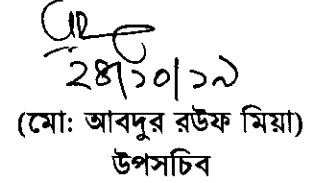 ২৪/১০/১৯
(মো: আবদুর রউফ মিয়া)
উপসচিব